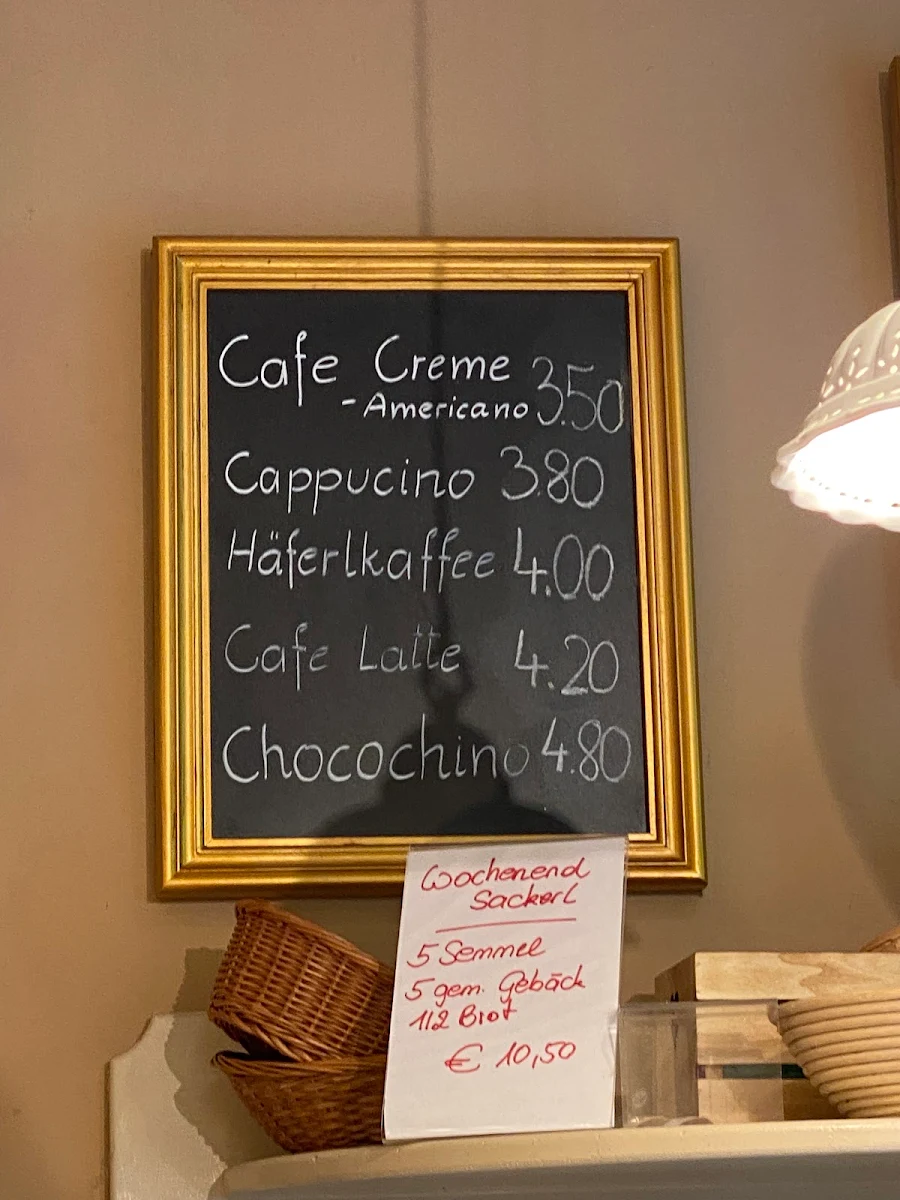 Cafe Creme
- Americano 3.50
Cappucino 3.80
Häferlkaffee 4.00
Cafe Latte 4.20
Chocochino 4.80
Wochenend
Sackerl
5 Semmel
5 gem. Gebäck
1/2 Brot
€ 10,50